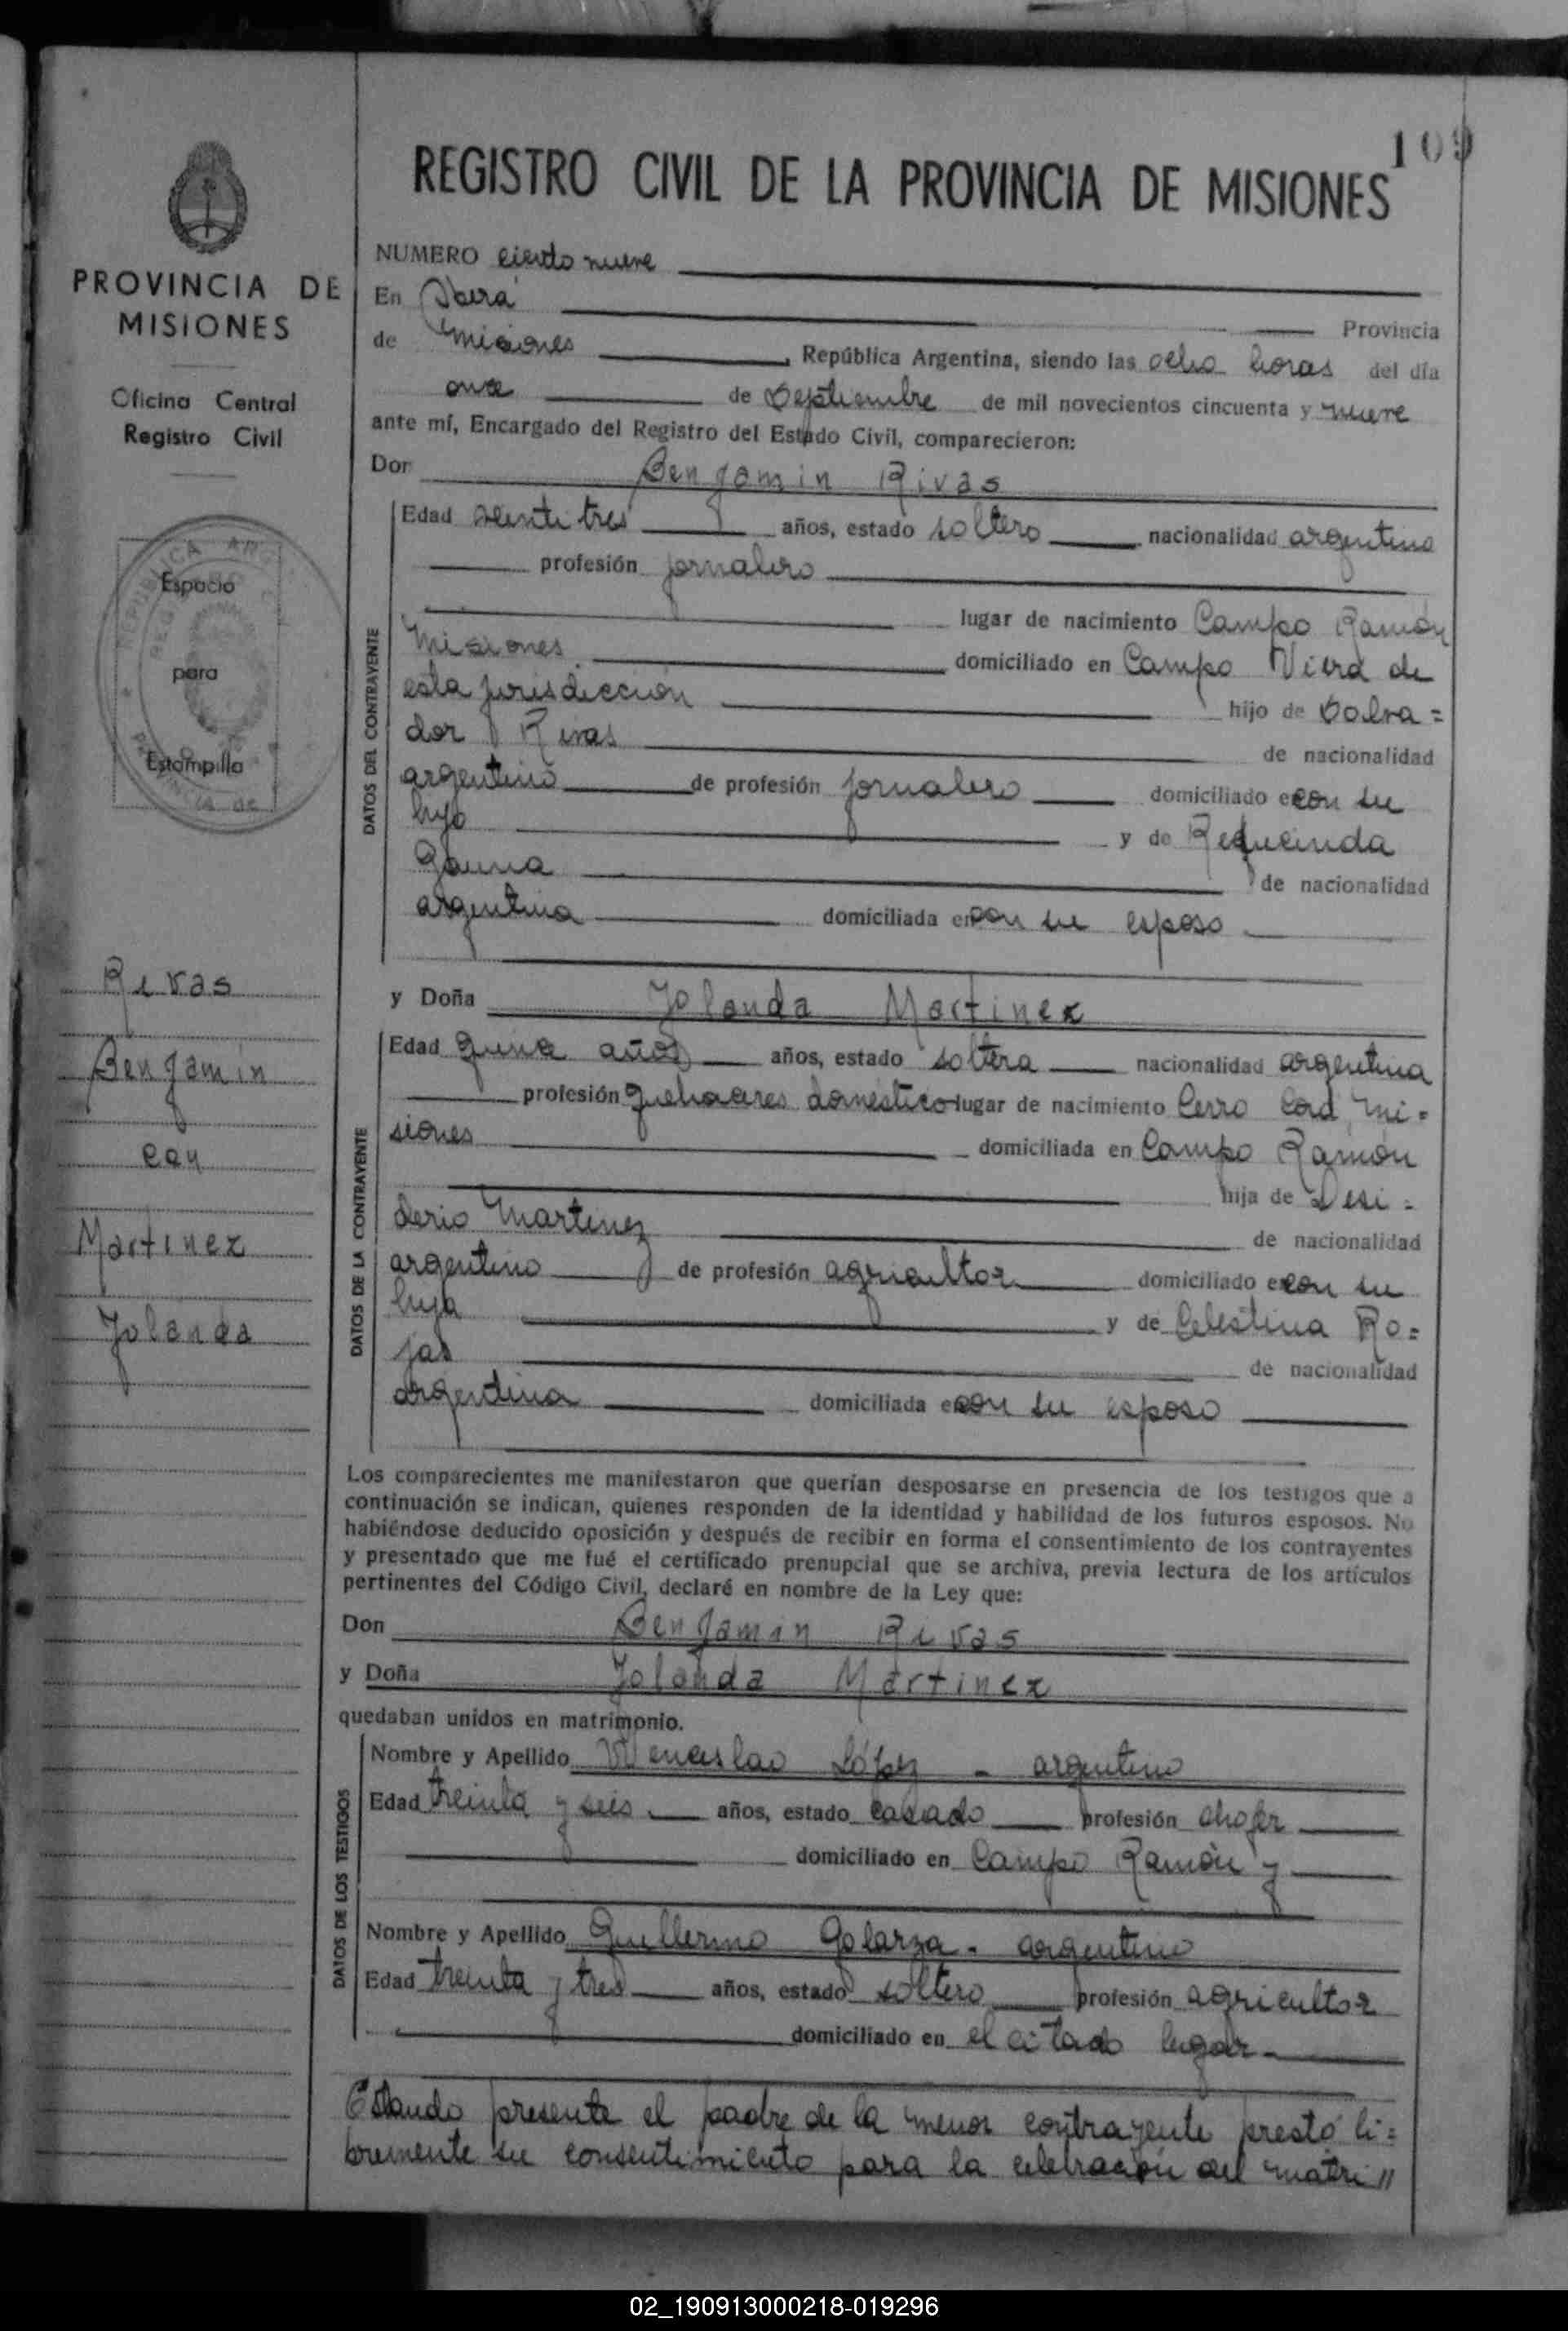 109
REGISTRO CIVIL DE LA PROVINCIA DE MISIONES
PROVINCIA DE
MISIONES
Oficina Central
Registro Civil
Espacio
para
Estampilla
Rivas
Benjamin
con
Martinez
Yolanda
NUMERO ciento nueve
En Oberá Provincia
de Misiones, República Argentina, siendo las ocho horas del día
once de Septiembre de mil novecientos cincuenta y nueve
ante mí, Encargado del Registro del Estado Civil, comparecieron:
Don Benjamin Rivas
DATOS DEL CONTRAYENTE
Edad veinte tres años, estado soltero nacionalidad argentino
profesión jornalero
lugar de nacimiento Campo Ramón
Misiones domiciliado en Campo Viera de
esta jurisdicción hijo de Salva=
dor Rivas de nacionalidad
argentino de profesión jornalero domiciliado en con su
hijo y de
Gauna de nacionalidad
argentina domiciliada en con su esposo
y Doña Yolanda Martinez
DATOS DE LA CONTRAYENTE
Edad quince años años, estado soltera nacionalidad argentina
profesión quehaceres domestico lugar de nacimiento Cerro Corá, Mi=
siones domiciliada en Campo Ramón
hija de Desi=
derio Martinez de nacionalidad
argentino de profesión agricultor domiciliado en con su
hija y de Celestina Ro=
jas de nacionalidad
argentina domiciliada en con su esposo
Los comparecientes me manifestaron que querían desposarse en presencia de los testigos que a
continuación se indican, quienes responden de la identidad y habilidad de los futuros esposos. No
habiéndose deducido oposición y después de recibir en forma el consentimiento de los contrayentes
y presentado que me fué el certificado prenupcial que se archiva, previa lectura de los artículos
pertinentes del Código Civil, declaré en nombre de la Ley que:
Don Benjamin Rivas
y Doña Yolanda Martinez
quedaban unidos en matrimonio.
DATOS DE LOS TESTIGOS
Nombre y Apellido Wenceslao López - argentino
Edad treinta y seis años, estado casado profesión chofer
domiciliado en Campo Ramón y
Nombre y Apellido Guillermo Golarza - argentino
Edad treinta y tres años, estado soltero profesión agricultor
domiciliado en el citado lugar.
Estando presente el padre de la menor contrayente prestó li=
bremente su consentimiento para la celebración del matri//
02_190913000218-019296